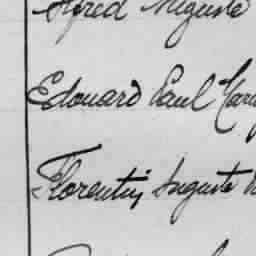 Alfred Auguste
Edouard Paul
Florentin Auguste